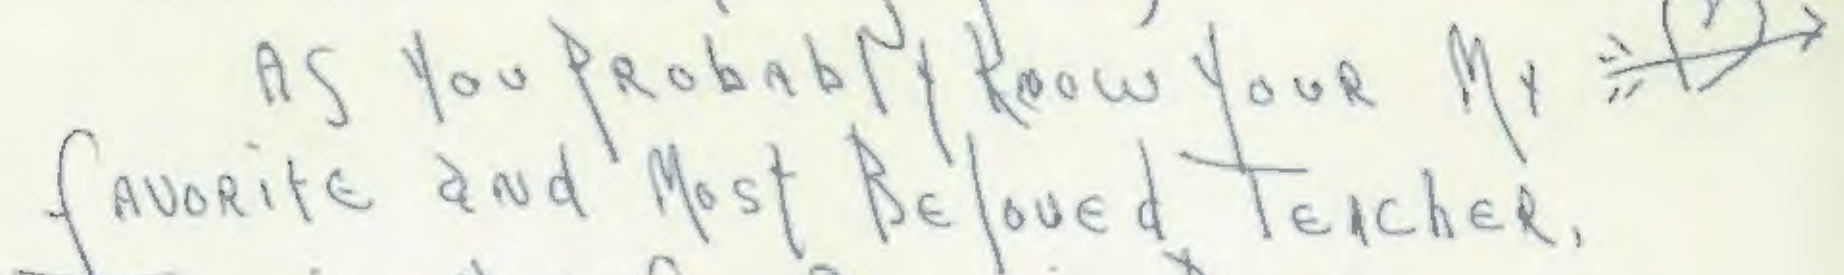 As You Probably Know Your My
favorite and Most Beloved Teacher.